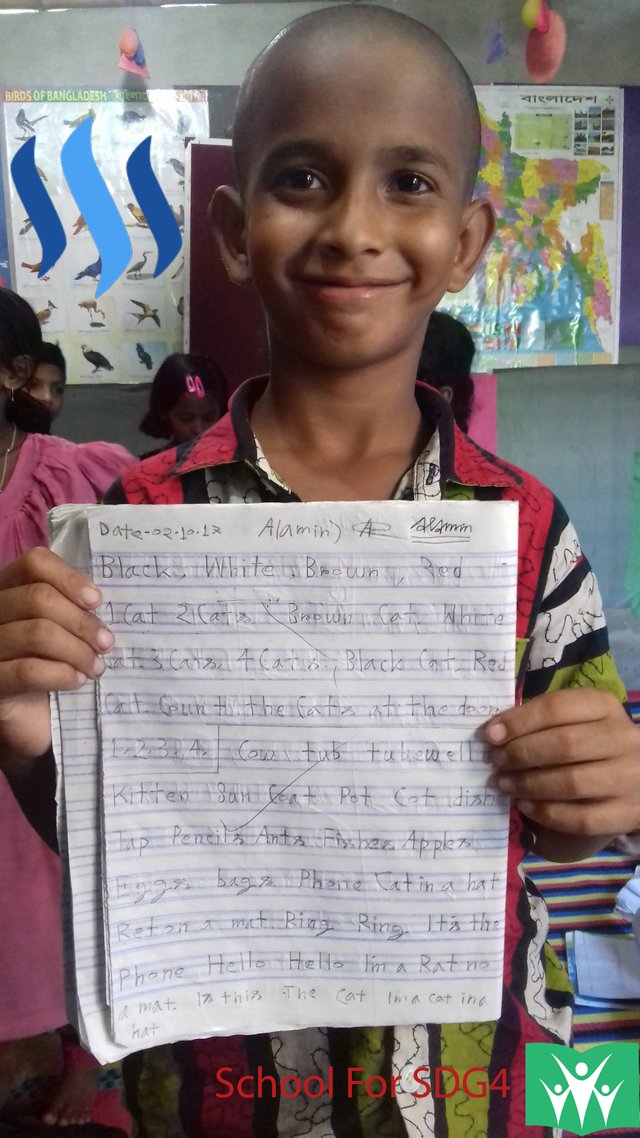 BIRDS OF BANGLADESH
বাংলাদেশ
Date-02.10.17 Alamin
Black, White, Brown, Red
1 Cat 2 Cats Brown Cat. White
Cat. 3 Cats. 4 Cats. Black Cat. Red
Cat. Count the Cats at the
1.2.3.4. Cow tub tubewell
Kitten Sun Pot Cot dish
Tap Pencils Ants Fishes Apples
Eggs bags Phone Cat in a hat
Ret on a mat. Ring Ring. It's the
Phone Hello Hello I'm a Rat no
a mat. Is this The Cat Im a cat in a
hat
School For SDG4